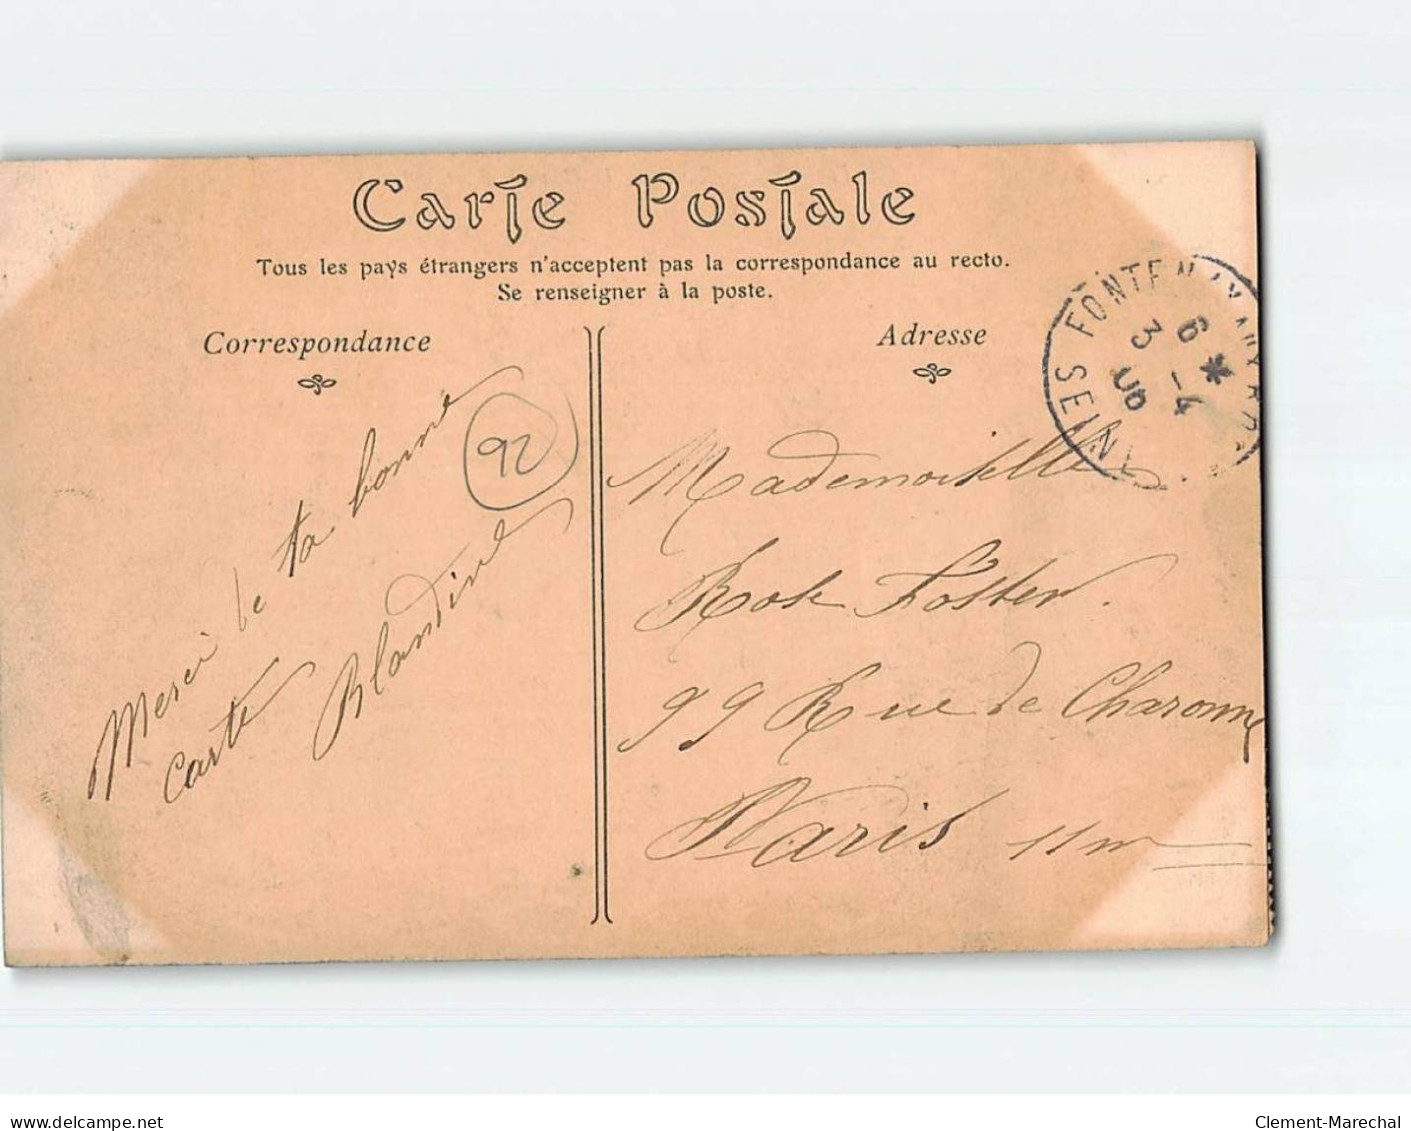 Carte Postale
Tous les pays étrangers n'acceptent pas la correspondance au recto.
Se renseigner à la poste.
Correspondance
Adresse
FONTENAY AUX ROSES
6 * 
3 - 4
06
92
Merci de ta bonne
carte
Blandine
Mademoiselle
Rose Foster.
99 Rue de Charonne
Paris 11m
www.delcampe.net
Clement-Marechal